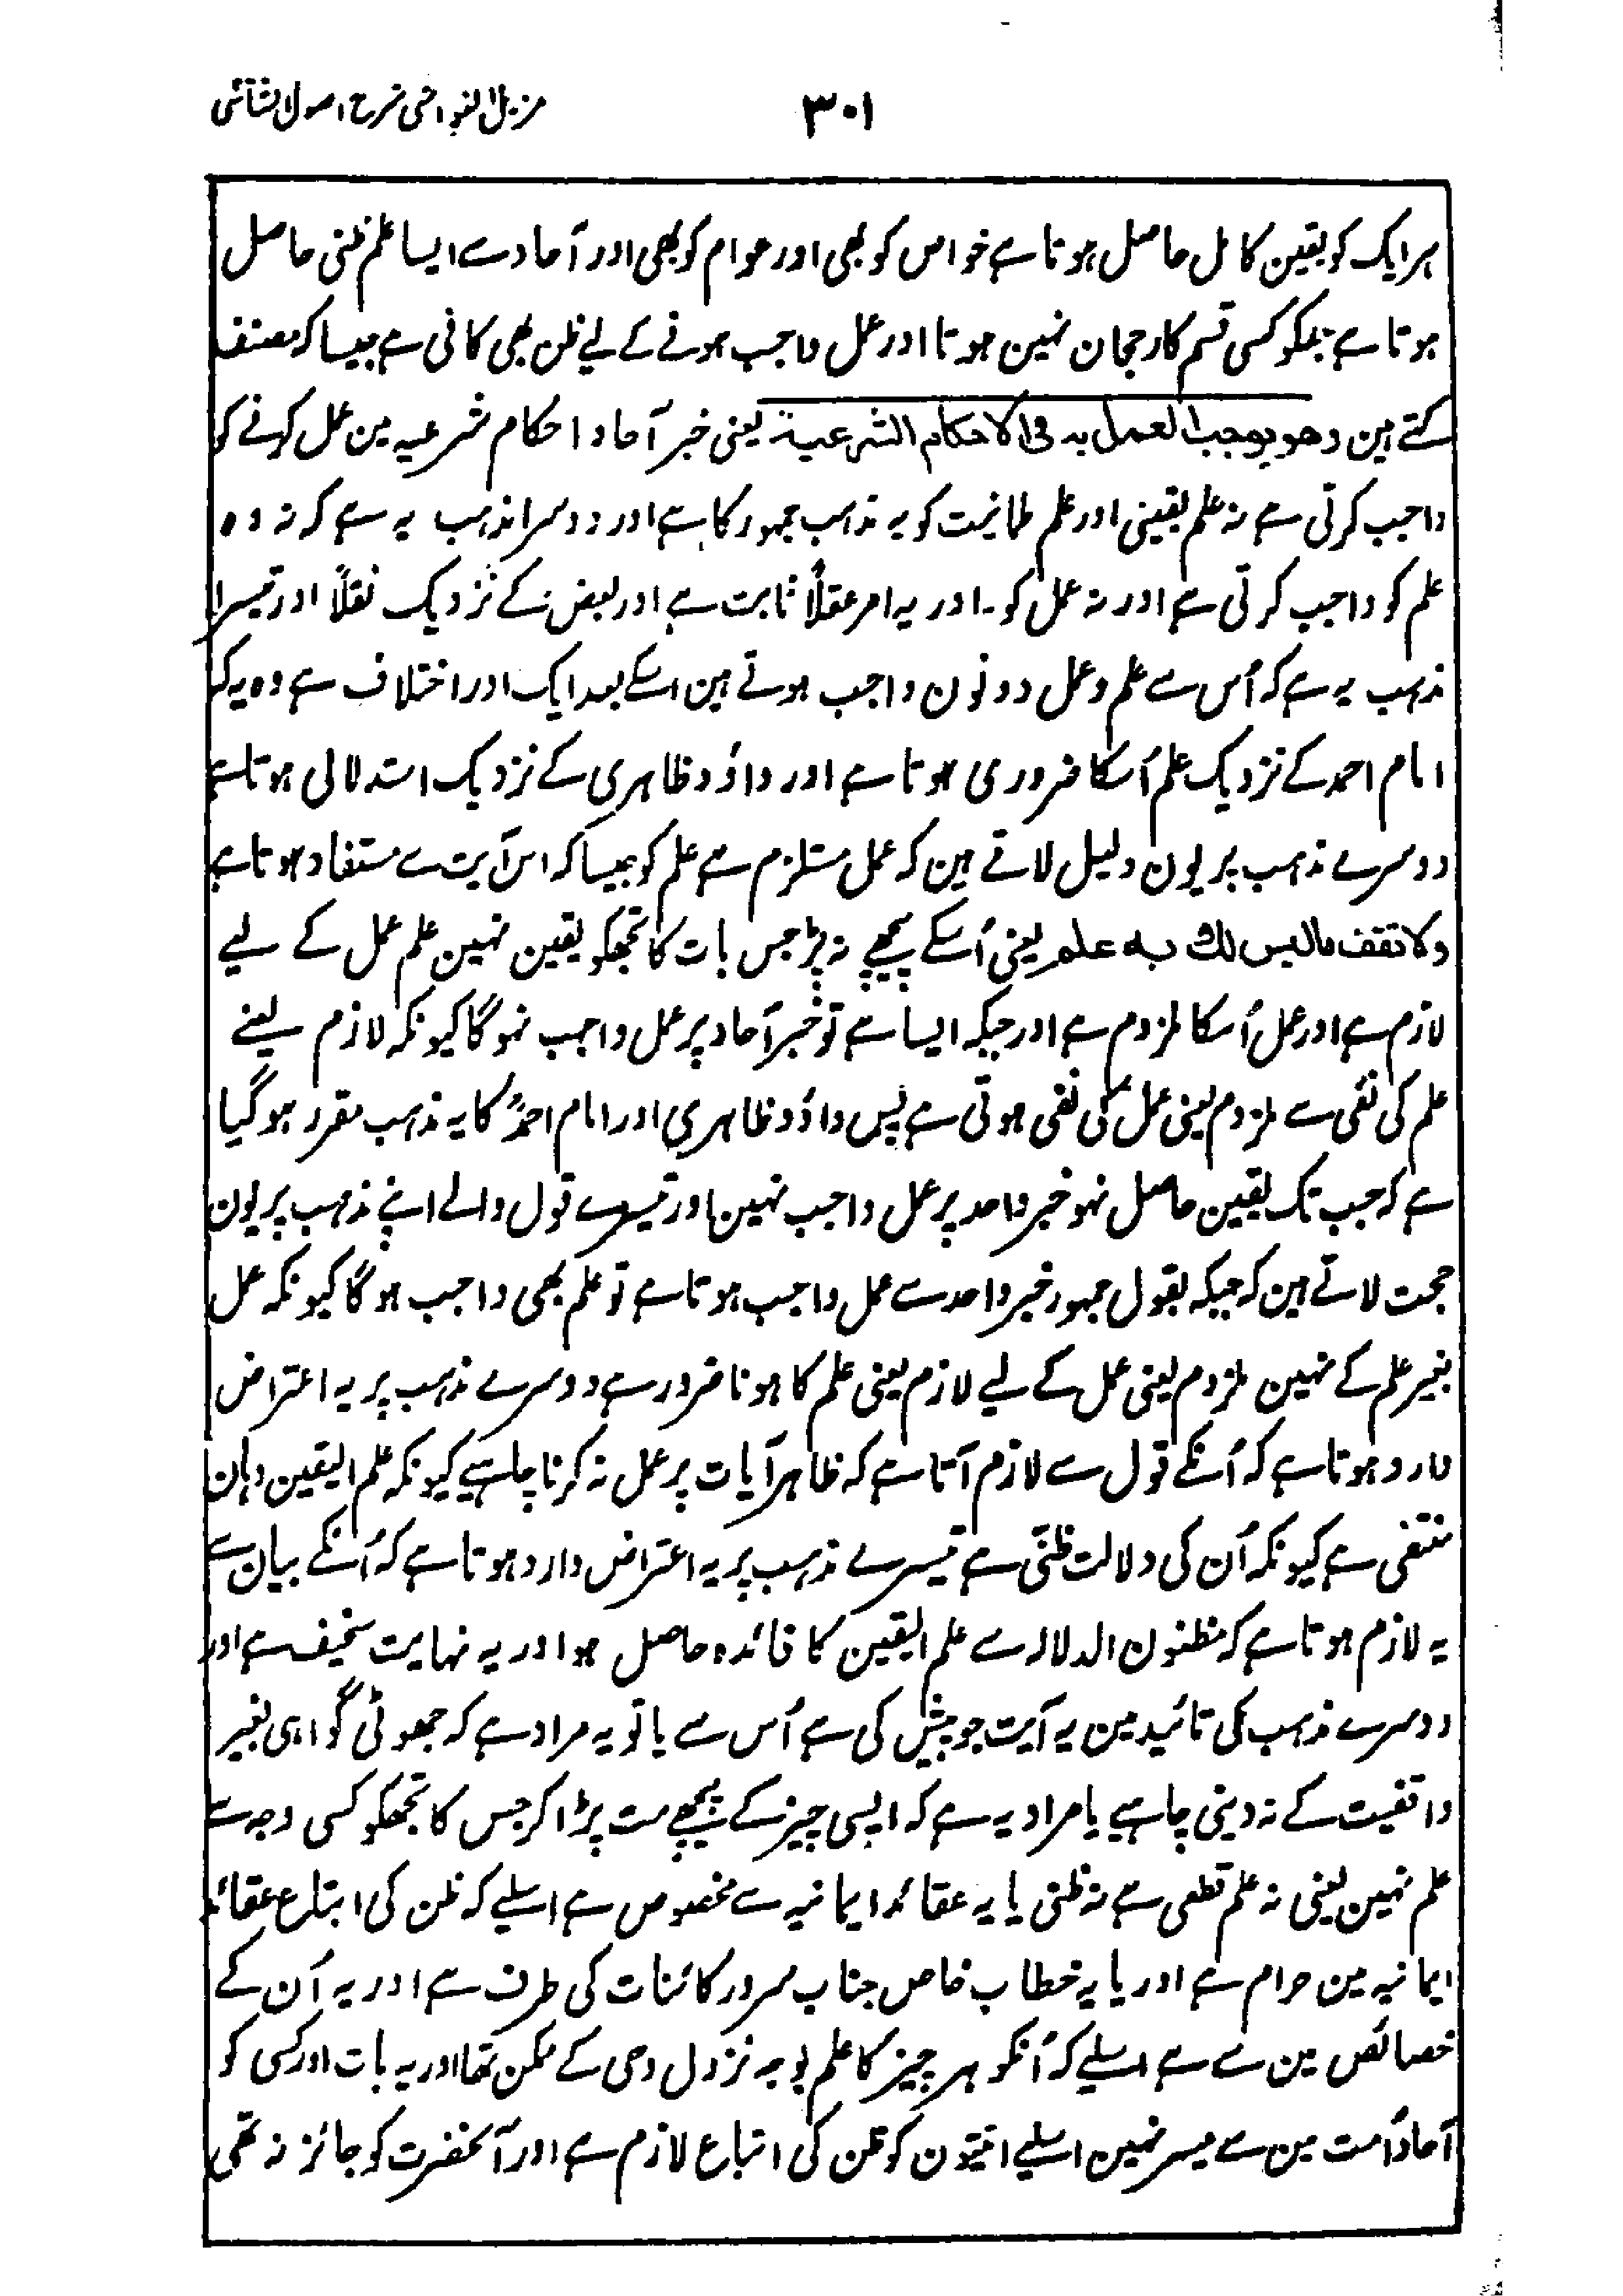 مزیل الغواشی شرح اصول الشاشی
۳۰۱
ہر ایک کو یقین کامل حاصل ہوتا ہے خواص کو بھی اور عوام کو بھی اور آحاد سے ایسا علم ظنی حاصل
ہوتا ہے جسکو کسی قسم کا رجحان نہین ہوتا اور عمل واجب ہونے کے لیے ظن بھی کافی ہے جیسا کہ مصنف
کہتے ہین وھو یوجب العمل بہ فی الاحکام الشرعیۃ یعنی خبر آحاد احکام شرعیہ مین عمل کرنے کو
واجب کرتی ہے نہ علم یقینی اور علم طمانیت کو یہ مذہب جمہور کا ہے اور دوسرا مذہب یہ ہے کہ نہ وہ
علم کو واجب کرتی ہے اور نہ عمل کو۔ اور یہ امر عقلاً ثابت ہے اور بعض کے نزدیک نقلاً اور تیسرا
مذہب یہ ہے کہ اُس سے علم و عمل دونون واجب ہوتے ہین اسکے بعد ایک اور اختلاف ہے وہ یہ کہ
امام احمد کے نزدیک علم اُسکا ضروری ہوتا ہے اور داؤد ظاہری کے نزدیک استدلالی ہوتا ہے
دوسرے مذہب پر یون دلیل لاتے ہین کہ عمل مستلزم ہے علم کو جیسا کہ اس آیت سے مستفاد ہوتا ہے
ولا تقف مالیس لک بہ علم یعنی اُسکے پیچھے نہ پڑ جس بات کا تجھکو یقین نہین علم عمل کے لیے
لازم ہے اور عمل اُسکا ملزوم ہے اور جبکہ ایسا ہے تو خبر آحاد پر عمل واجب نہوگا کیونکہ لازم یعنے
علم کی نفی سے ملزوم یعنی عمل کی نفی ہوتی ہے پس داؤد ظاہری اور امام احمدؒ کا یہ مذہب مقرر ہو گیا
ہے کہ جب تک یقین حاصل نہو خبر واحد پر عمل واجب نہین اور تیسرے قول والے اپنے مذہب پر یون
حجت لاتے ہین کہ جبکہ بقول جمہور خبر واحد سے عمل واجب ہوتا ہے تو علم بھی واجب ہوگا کیونکہ عمل
بغیر علم کے نہین ملزوم یعنی عمل کے لیے لازم یعنی علم کا ہونا ضرور ہے دوسرے مذہب پر یہ اعتراض
وارد ہوتا ہے کہ اُنکے قول سے لازم آتا ہے کہ ظاہر آیات پر عمل نہ کرنا چاہیے کیونکہ علم الیقین وہان
منتفی ہے کیونکہ اُن کی دلالت ظنّی ہے تیسرے مذہب پر یہ اعتراض وارد ہوتا ہے کہ اُنکے بیان سے
یہ لازم ہوتا ہے کہ مظنون الدلالہ سے علم الیقین کا فائدہ حاصل ہو اور یہ نہایت سخیف ہے اور
دوسرے مذہب کی تائید مین یہ آیت جو پیش کی ہے اُس سے یا تو یہ مراد ہے کہ جھوٹی گواہی بغیر
واقفیت کے نہ دینی چاہیے یا مراد یہ ہے کہ ایسی چیز کے پیچھے مت پڑا کر جس کا تجھکو کسی وجہ سے
علم نہین یعنی نہ علم قطعی ہے نہ ظنی یا یہ عقائد ایمانیہ سے مخصوص ہے اسلیے کہ ظن کی ابتاع عقائد
ایمانیہ مین حرام ہے اور یا یہ خطاب خاص جناب سرور کائنات کی طرف ہے اور یہ اُن کے
خصائص مین سے ہے اسلیے کہ اُنکو ہر چیز کا علم بوجہ نزول وحی کے ممکن تھا اور یہ بات اور کسی کو
آحاد اُمت مین سے میسر نہین اسلیے امتیون کو ظن کی اتباع لازم ہے اور آنحضرت کو جائز نہ تھی